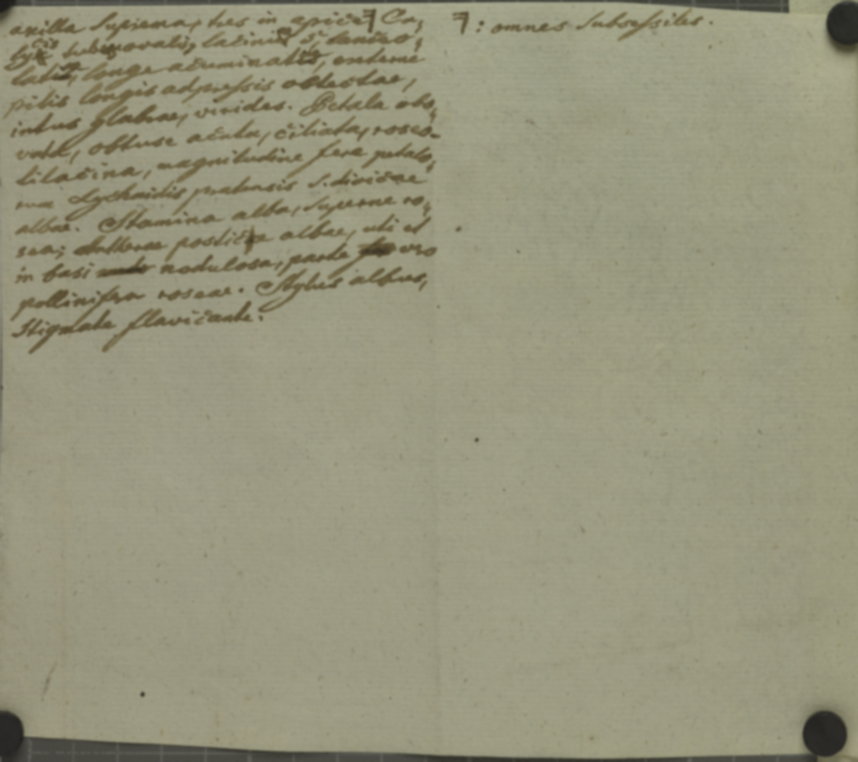 axilla suprema, tres in apice ⁊ Ca,
lycis tubus ovalis, laciniae 5 lanceo,
latae, longe acuminatae, externe
pilis longis adpressis obtectae,
intus glabrae, virides. Petala obo,
vata, obtuse acuta, ciliata, roseo-
lilacina, magnitudine fere petalo,
rum Lychnidis pratensis s. dioicae
albae. Stamina alba, superne ro,
sea; Antherae posticae albae, uti et
in basi nodulosa, parte vero
pollinifera roseae. Stylus albus,
stigmate flavicante.
⁊ : omnes subsessiles.